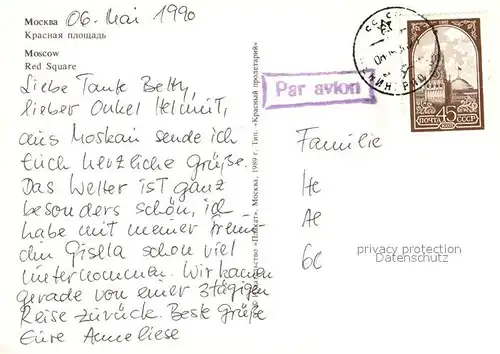 Москва 06. Mai 1990
Красная площадь
Moscow
Red Square
Liebe Tante Betty,
lieber Onkel Helmut,
aus Moskau sende ich
Euch herzliche Grüße.
Das Wetter ist ganz
besonders schön, ich
habe mit meiner Freun-
din Gisella schon viel
unternommen. Wir kamen
gerade von einer 3tägigen
Reise zurück. Beste Grüße
Eure Anneliese
Издательство «Плакат». Москва, 1989 г. Тип. «Красный пролетарий»
Par avion
ПОЧТА 45 СССР
Familie
He
Ae
privacy protection
Datenschutz